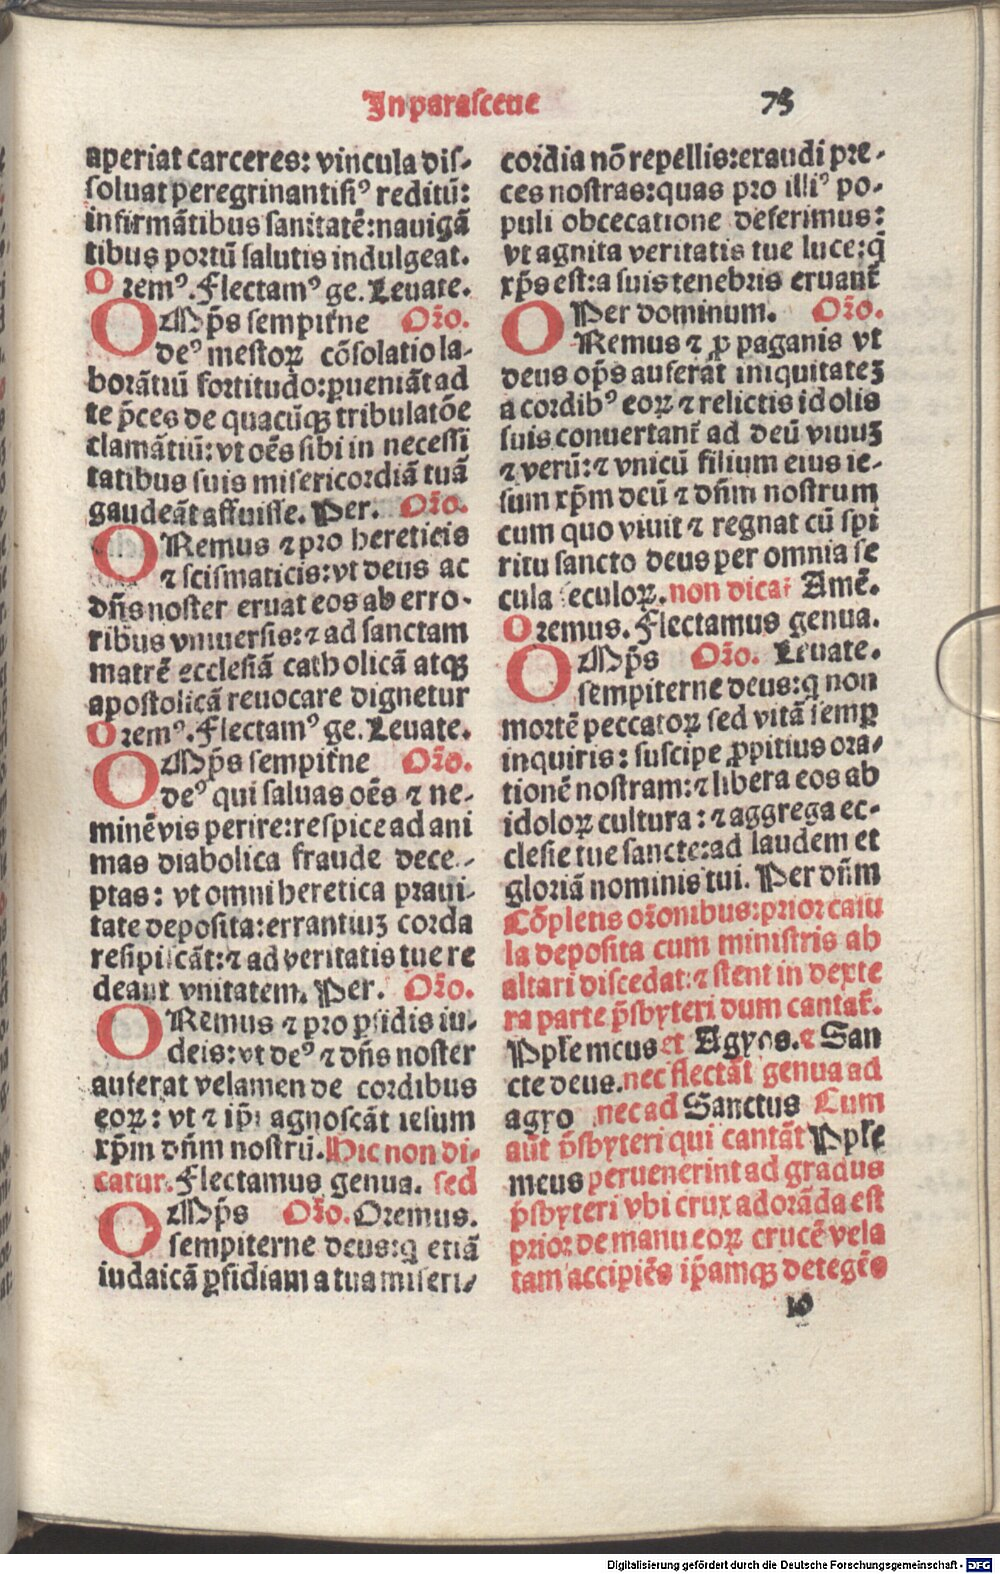 In parasceue 73
aperiat carceres: vincula dis-
soluat peregrinantibꝰ reditū:
infirmātibus sanitatē: nauigā
tibus portū salutis indulgeat.
Oremꝰ. Flectamꝰ ge. Leuate.
OMp̄s sempit̄ne Or̄o.
deꝰ mestoꝝ cōsolatio la-
borātiū fortitudo: ꝑueniāt ad
te p̄ces de quacūqꝫ tribulatōe
clamātiū: vt oēs sibi in necessi
tatibus suis misericordiā tuā
gaudeāt affuisse. Per. Or̄o.
ORemus ⁊ pro hereticis
⁊ scismaticis: vt deus ac
dn̄s noster eruat eos ab erro-
ribus vniuersis: ⁊ ad sanctam
matrē ecclesiā catholicā atqꝫ
apostolicā reuocare dignetur
Oremꝰ. Flectamꝰ ge. Leuate.
OMp̄s sempit̄ne Or̄o.
deꝰ qui saluas oēs ⁊ ne-
minē vis perire: respice ad ani
mas diabolica fraude dece-
ptas: vt omni heretica praui-
tate deposita: errantiuꝫ corda
resipiscāt: ⁊ ad veritatis tue re
deant vnitatem. Per. Or̄o.
ORemus ⁊ pro ꝑfidis iu-
deis: vt deꝰ ⁊ dn̄s noster
auferat velamen de cordibus
eoꝝ: vt ⁊ ip̄i agnoscāt iesum
xp̄m dn̄m nostrū. Hic non di-
catur. Flectamus genua. sed
OMp̄s Or̄o. Oremus.
sempiterne deus: q̄ etiā
iudaicā ꝑfidiam a tua miseri-
cordia nō repellis: exaudi pre-
ces nostras: quas pro illiꝰ po-
puli obcecatione deferimus:
vt agnita veritatis tue luce: q̄
xp̄s est: a suis tenebris eruant̄
Per dominum. Or̄o.
ORemus ⁊ ꝓ paganis vt
deus op̄s auferat iniquitateꝫ
a cordibꝰ eoꝝ ⁊ relictis idolis
suis conuertant̄ ad deū viuuꝫ
⁊ verū: ⁊ vnicū filium eius ie-
sum xp̄m deū ⁊ dn̄m nostrum
cum quo viuit ⁊ regnat cū spi
ritu sancto deus per omnia se
cula seculoꝝ. non dicat̄ Amē.
Oremus. Flectamus genua.
OMp̄s Or̄o. Leuate.
sempiterne deus: q̄ non
mortē peccatoꝝ sed vitā semꝑ
inquiris: suscipe ꝓpitius ora-
tionē nostram: ⁊ libera eos ab
idoloꝝ cultura: ⁊ aggrega ec-
clesie tue sancte: ad laudem et
gloriā nominis tui. Per dn̄m
Cōpletis or̄onibus: prior casu
la deposita cum ministris ab
altari discedat: ⁊ stent in dexte
ra parte p̄sbyteri dum cantat̄.
Pp̄le meus et Agyos. ⁊ San
cte deus. nec flectāt genua ad
agyo nec ad Sanctus Cum
aūt p̄sbyteri qui cantāt Pp̄le
meus peruenerint ad gradus
p̄sbyteri vbi crux adorāda est
prior de manu eoꝝ crucē vela
tam accipiēs ip̄amqꝫ detegēs
10
Digitalisierung gefördert durch die Deutsche Forschungsgemeinschaft - DFG